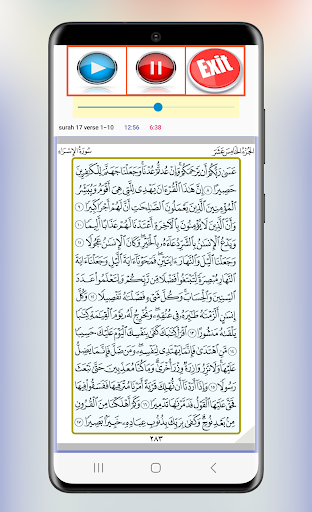 Exit
surah 17 verse 1–10 12:56 6:38
الجزء الخامس عشر سورة الإسراء
عَسَىٰ رَبُّكُمْ أَن يَرْحَمَكُمْ وَإِنْ عُدتُّمْ عُدْنَا وَجَعَلْنَا جَهَنَّمَ لِلْكَٰفِرِينَ
حَصِيرًا ٨ إِنَّ هَٰذَا ٱلْقُرْءَانَ يَهْدِى لِلَّتِى هِىَ أَقْوَمُ وَيُبَشِّرُ
ٱلْمُؤْمِنِينَ ٱلَّذِينَ يَعْمَلُونَ ٱلصَّٰلِحَٰتِ أَنَّ لَهُمْ أَجْرًا كَبِيرًا ٩
وَأَنَّ ٱلَّذِينَ لَا يُؤْمِنُونَ بِٱلْءَاخِرَةِ أَعْتَدْنَا لَهُمْ عَذَابًا أَلِيمًا ١٠
وَيَدْعُ ٱلْإِنسَٰنُ بِٱلشَّرِّ دُعَآءَهُۥ بِٱلْخَيْرِ وَكَانَ ٱلْإِنسَٰنُ عَجُولًا ١١
وَجَعَلْنَا ٱلَّيْلَ وَٱلنَّهَارَ ءَايَتَيْنِ فَمَحَوْنَآ ءَايَةَ ٱلَّيْلِ وَجَعَلْنَآ ءَايَةَ
ٱلنَّهَارِ مُبْصِرَةً لِّتَبْتَغُوا۟ فَضْلًا مِّن رَّبِّكُمْ وَلِتَعْلَمُوا۟ عَدَدَ
ٱلسِّنِينَ وَٱلْحِسَابَ وَكُلَّ شَىْءٍ فَصَّلْنَٰهُ تَفْصِيلًا ١٢ وَكُلَّ
إِنسَٰنٍ أَلْزَمْنَٰهُ طَٰٓئِرَهُۥ فِى عُنُقِهِۦ وَنُخْرِجُ لَهُۥ يَوْمَ ٱلْقِيَٰمَةِ كِتَٰبًا
يَلْقَىٰهُ مَنشُورًا ١٣ ٱقْرَأْ كِتَٰبَكَ كَفَىٰ بِنَفْسِكَ ٱلْيَوْمَ عَلَيْكَ حَسِيبًا
١٤ مَّنِ ٱهْتَدَىٰ فَإِنَّمَا يَهْتَدِى لِنَفْسِهِۦ وَمَن ضَلَّ فَإِنَّمَا يَضِلُّ
عَلَيْهَا وَلَا تَزِرُ وَازِرَةٌ وِزْرَ أُخْرَىٰ وَمَا كُنَّا مُعَذِّبِينَ حَتَّىٰ نَبْعَثَ
رَسُولًا ١٥ وَإِذَآ أَرَدْنَآ أَن نُّهْلِكَ قَرْيَةً أَمَرْنَا مُتْرَفِيهَا فَفَسَقُوا۟ فِيهَا
فَحَقَّ عَلَيْهَا ٱلْقَوْلُ فَدَمَّرْنَٰهَا تَدْمِيرًا ١٦ وَكَمْ أَهْلَكْنَا مِنَ ٱلْقُرُونِ
مِنۢ بَعْدِ نُوحٍ وَكَفَىٰ بِرَبِّكَ بِذُنُوبِ عِبَادِهِۦ خَبِيرًۢا بَصِيرًا ١٧
٢٨٣